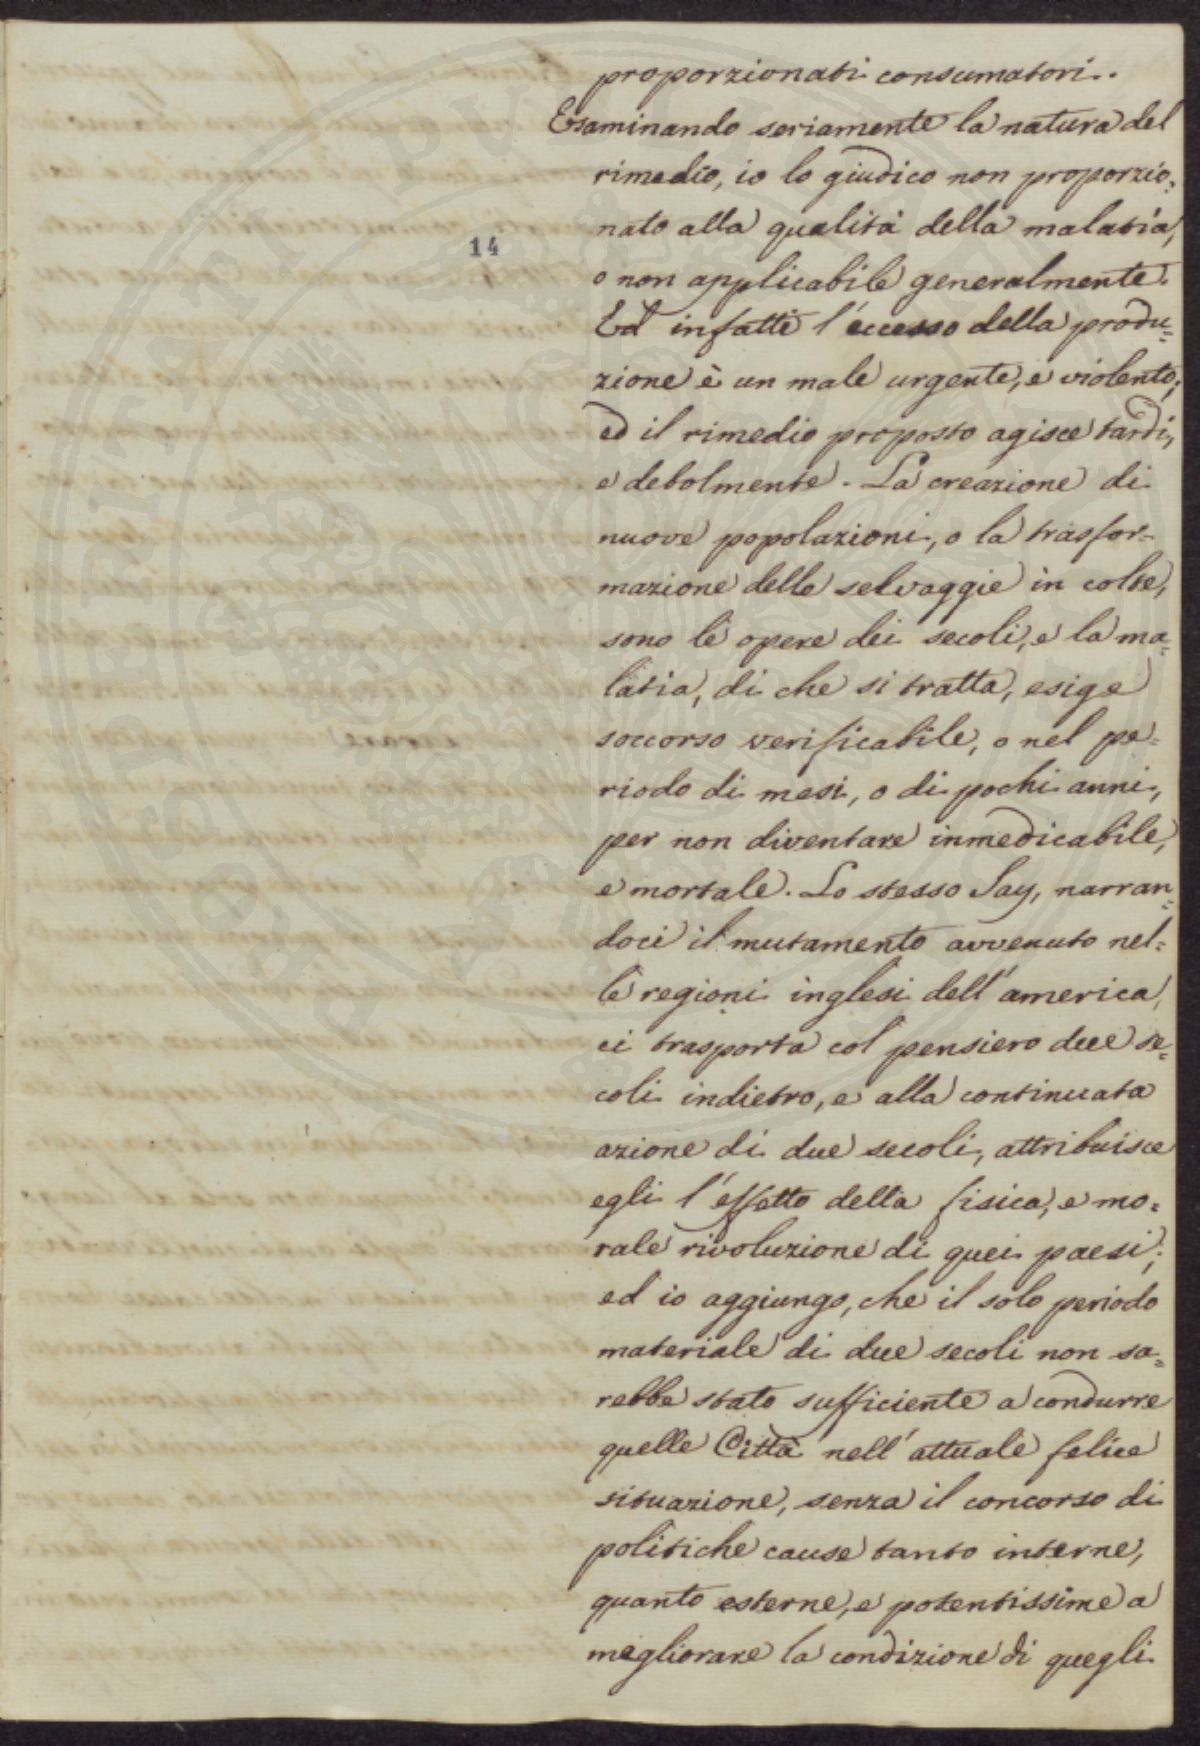 proporzionati consumatori.
Esaminando seriamente la natura del
rimedio, io lo giudico non proporzio-
nato alla qualità della malatia,
14
o non applicabile generalmente.
Ed infatti l'eccesso della produ=
zione è un male urgente, e violento;
ed il rimedio proposto agisce tardi,
e debolmente. La creazione di
nuove popolazioni, o la trasfor-
mazione delle selvaggie in colte,
sono le opere dei secoli, e la ma=
latia, di che si tratta, esige
soccorso verificabile, o nel pe=
riodo di mesi, o di pochi anni,
per non diventare inmedicabile,
e mortale. Lo stesso Say, narran=
doci il mutamento avvenuto nel=
le regioni inglesi dell'america,
ci trasporta col pensiero due se=
coli indietro, e alla continuata
azione di due secoli, attribuisce
egli l'effetto della fisica, e mo=
rale rivoluzione di quei paesi;
ed io aggiungo, che il solo periodo
materiale di due secoli non sa=
rebbe stato sufficiente a condurre
quelle Città nell'attuale felice
situazione, senza il concorso di
politiche cause tanto interne,
quanto esterne, e potentissime a
megliorare la condizione di quegli